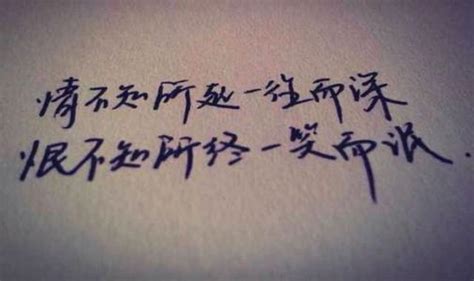 情不知所起一往而深
恨不知所终一笑而泯.